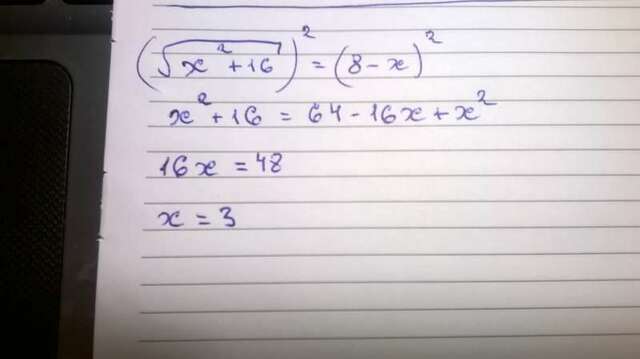 (√(x² + 16))² = (8 - x)²
x² + 16 = 64 - 16x + x²
16x = 48
x = 3